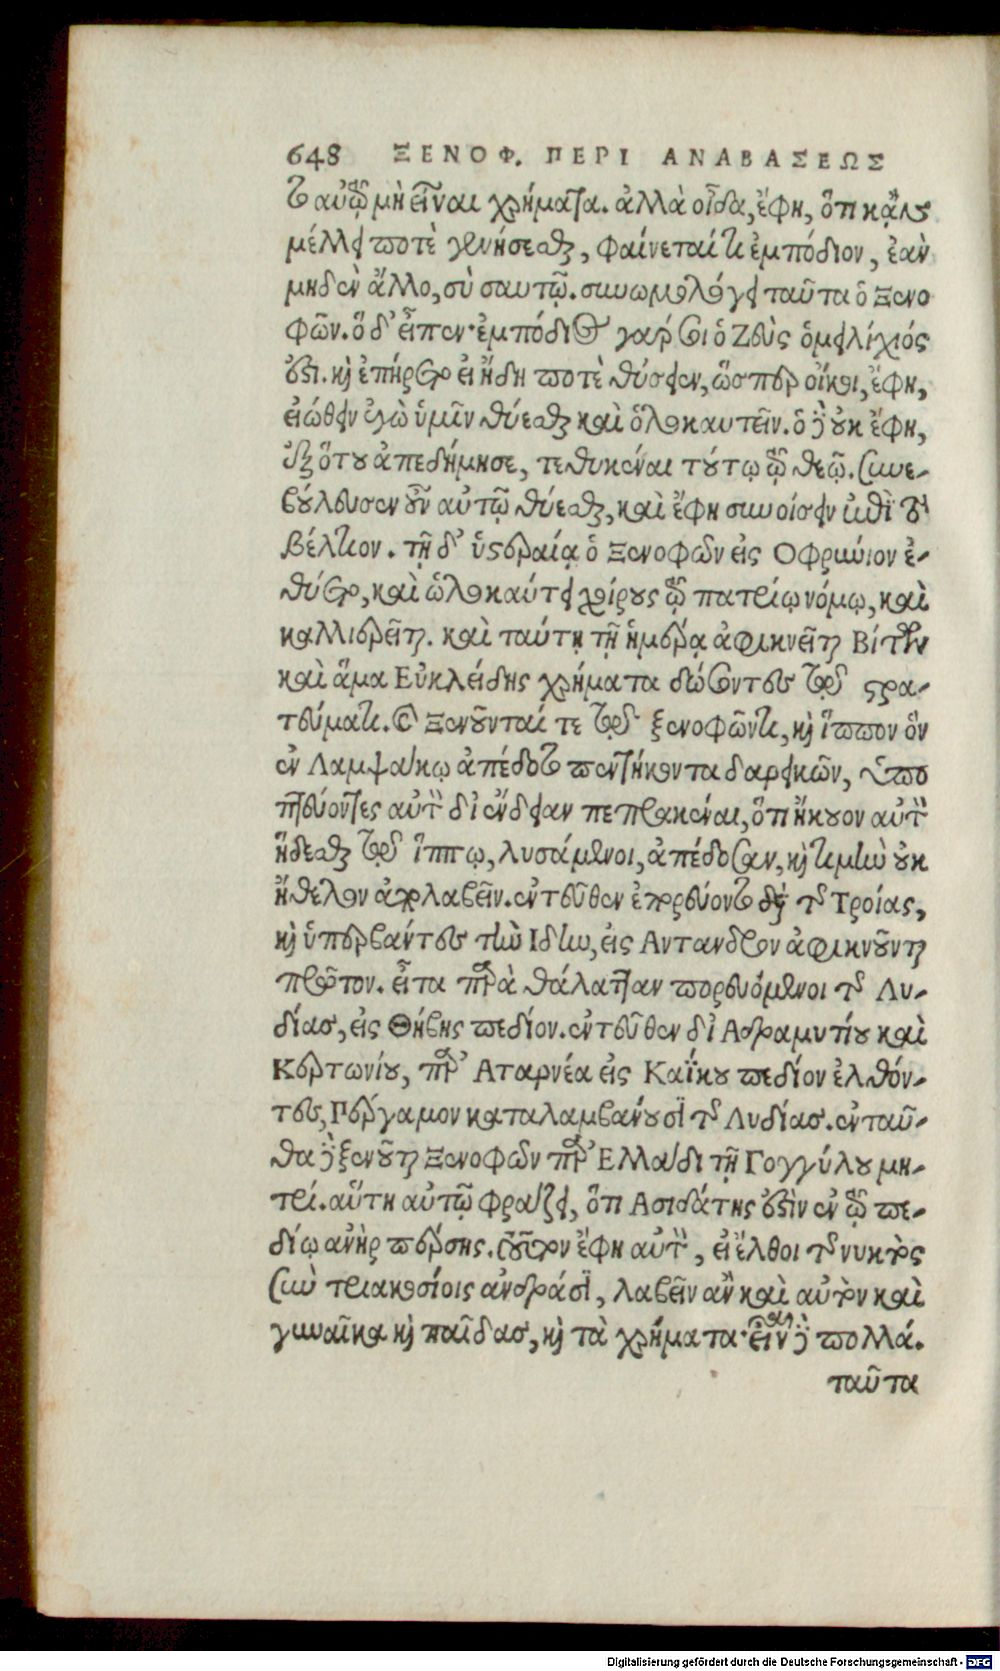 648 ΞΕΝΟΦ. ΠΕΡΙ ΑΝΑΒΑΣΕΩΣ
το αὐτῷ μὴ εἶναι χρήματα. ἀλλὰ οἶδα, ἔφη, ὅτι κἂν
μέλλῃ ποτὲ γενήσεσθαι, φαίνεταί τι ἐμπόδιον, ἐὰν
μηδὲν ἄλλο, σὺ σαυτῷ. συνωμολόγει ταῦτα ὁ Ξενο-
φῶν. ὁ δ' εἶπεν· ἐμπόδιος γάρ σοι ὁ Ζεὺς ὁ μειλίχιός
ἐστι. καὶ ἐπήρετο εἰ ἤδη ποτὲ θύσειεν, ὥσπερ οἴκοι, ἔφη,
εἰώθειν ἐγὼ ὑμῖν θύεσθαι καὶ ὁλοκαυτεῖν. ὁ δὲ οὐκ ἔφη,
ἐξ ὅτου ἀπεδήμησε, τεθυκέναι τούτῳ τῷ θεῷ. συνε-
βούλευσεν οὖν αὐτῷ θύεσθαι, καὶ ἔφη συνοίσειν ἐπὶ τὸ
βέλτιον. τῇ δ' ὑστεραίᾳ ὁ Ξενοφῶν εἰς Οφρύνιον ἐ-
θύετο, καὶ ὡλοκαύτει χοίρους τῷ πατρίῳ νόμῳ, καὶ
καλλιερεῖται. καὶ ταύτῃ τῇ ἡμέρᾳ ἀφικνεῖται Βίτων
καὶ ἅμα Εὐκλείδης χρήματα δώσοντες τῷ στρα-
τεύματι. καὶ Ξενοῦνταί τε τῷ ξενοφῶντι, καὶ ἵππον ὃν
ἐν Λαμψάκῳ ἀπέδοτο πεντήκοντα δαρεικῶν, ὑπο
πτεύοντες αὐτὸν δι' ἔνδειαν πεπρακέναι, ὅτι ἤκουον αὐτὸν
ἥδεσθαι τῷ ἵππῳ, λυσάμενοι, ἀπέδοσαν, καὶ τιμὴν οὐκ
ἤθελον ἀπολαβεῖν. ἐντεῦθεν ἐπορεύοντο διὰ τῆς Τροίας,
καὶ ὑπερβάντες τὴν Ιδην, εἰς Αντανδρον ἀφικνοῦνται
πρῶτον. εἶτα παρὰ θάλατταν πορευόμενοι τῆς Λυ-
δίας, εἰς Θήβης πεδίον. ἐντεῦθεν δι' Αδραμυτίου καὶ
Κερτωνίου, παρ' Αταρνέα εἰς Καΐκου πεδίον ἐλθόν-
τες, Πέργαμον καταλαμβάνουσι τῆς Λυδίας. ἐνταῦ-
θα δὲ ξενοῦται Ξενοφῶν παρ' Ἑλλάδι τῇ Γογγύλου μη-
τρί. αὕτη αὐτῷ φράζει, ὅτι Ασιδάτης ἐστὶν ἐν τῷ πε-
δίῳ ἀνὴρ πέρσης. τοῦτον ἔφη αὐτὸν, εἰ ἔλθοι τῆς νυκτὸς
σὺν τριακοσίοις ἀνδράσι, λαβεῖν ἂν καὶ αὐτὸν καὶ
γυναῖκα καὶ παῖδας, καὶ τὰ χρήματα· εἶναι δὲ πολλά.
ταῦτα
Digitalisierung gefördert durch die Deutsche Forschungsgemeinschaft - DFG